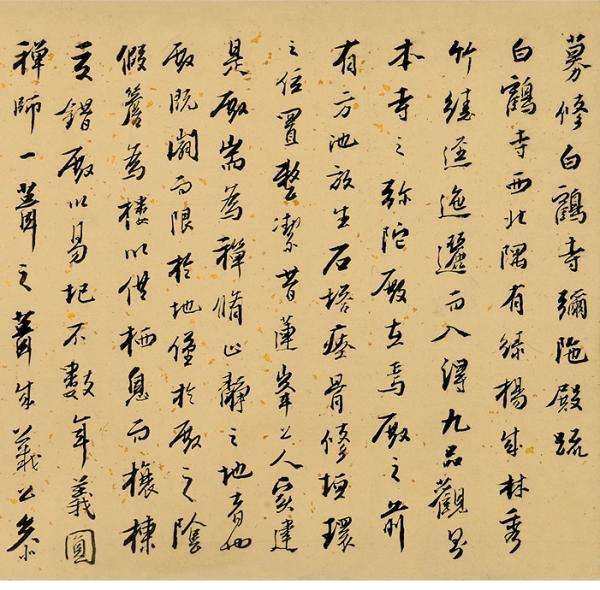 募修白鶴寺彌陁殿疏
白鶴寺西北隅有綠楊成林秀
竹逕迤邐而入得九品觀即
本寺之弥陀殿在焉殿之前
有方池放生石塔瘞骨修垣環
之位置整潔昔蓮峯上人寔建
是殿耑為禪脩止靜之地
殿既而限於地僅於殿之陰
假簷為樓以供栖息而榱棟
交錯殿以易圮不數年義圓
禪師一葺之葺成義公參